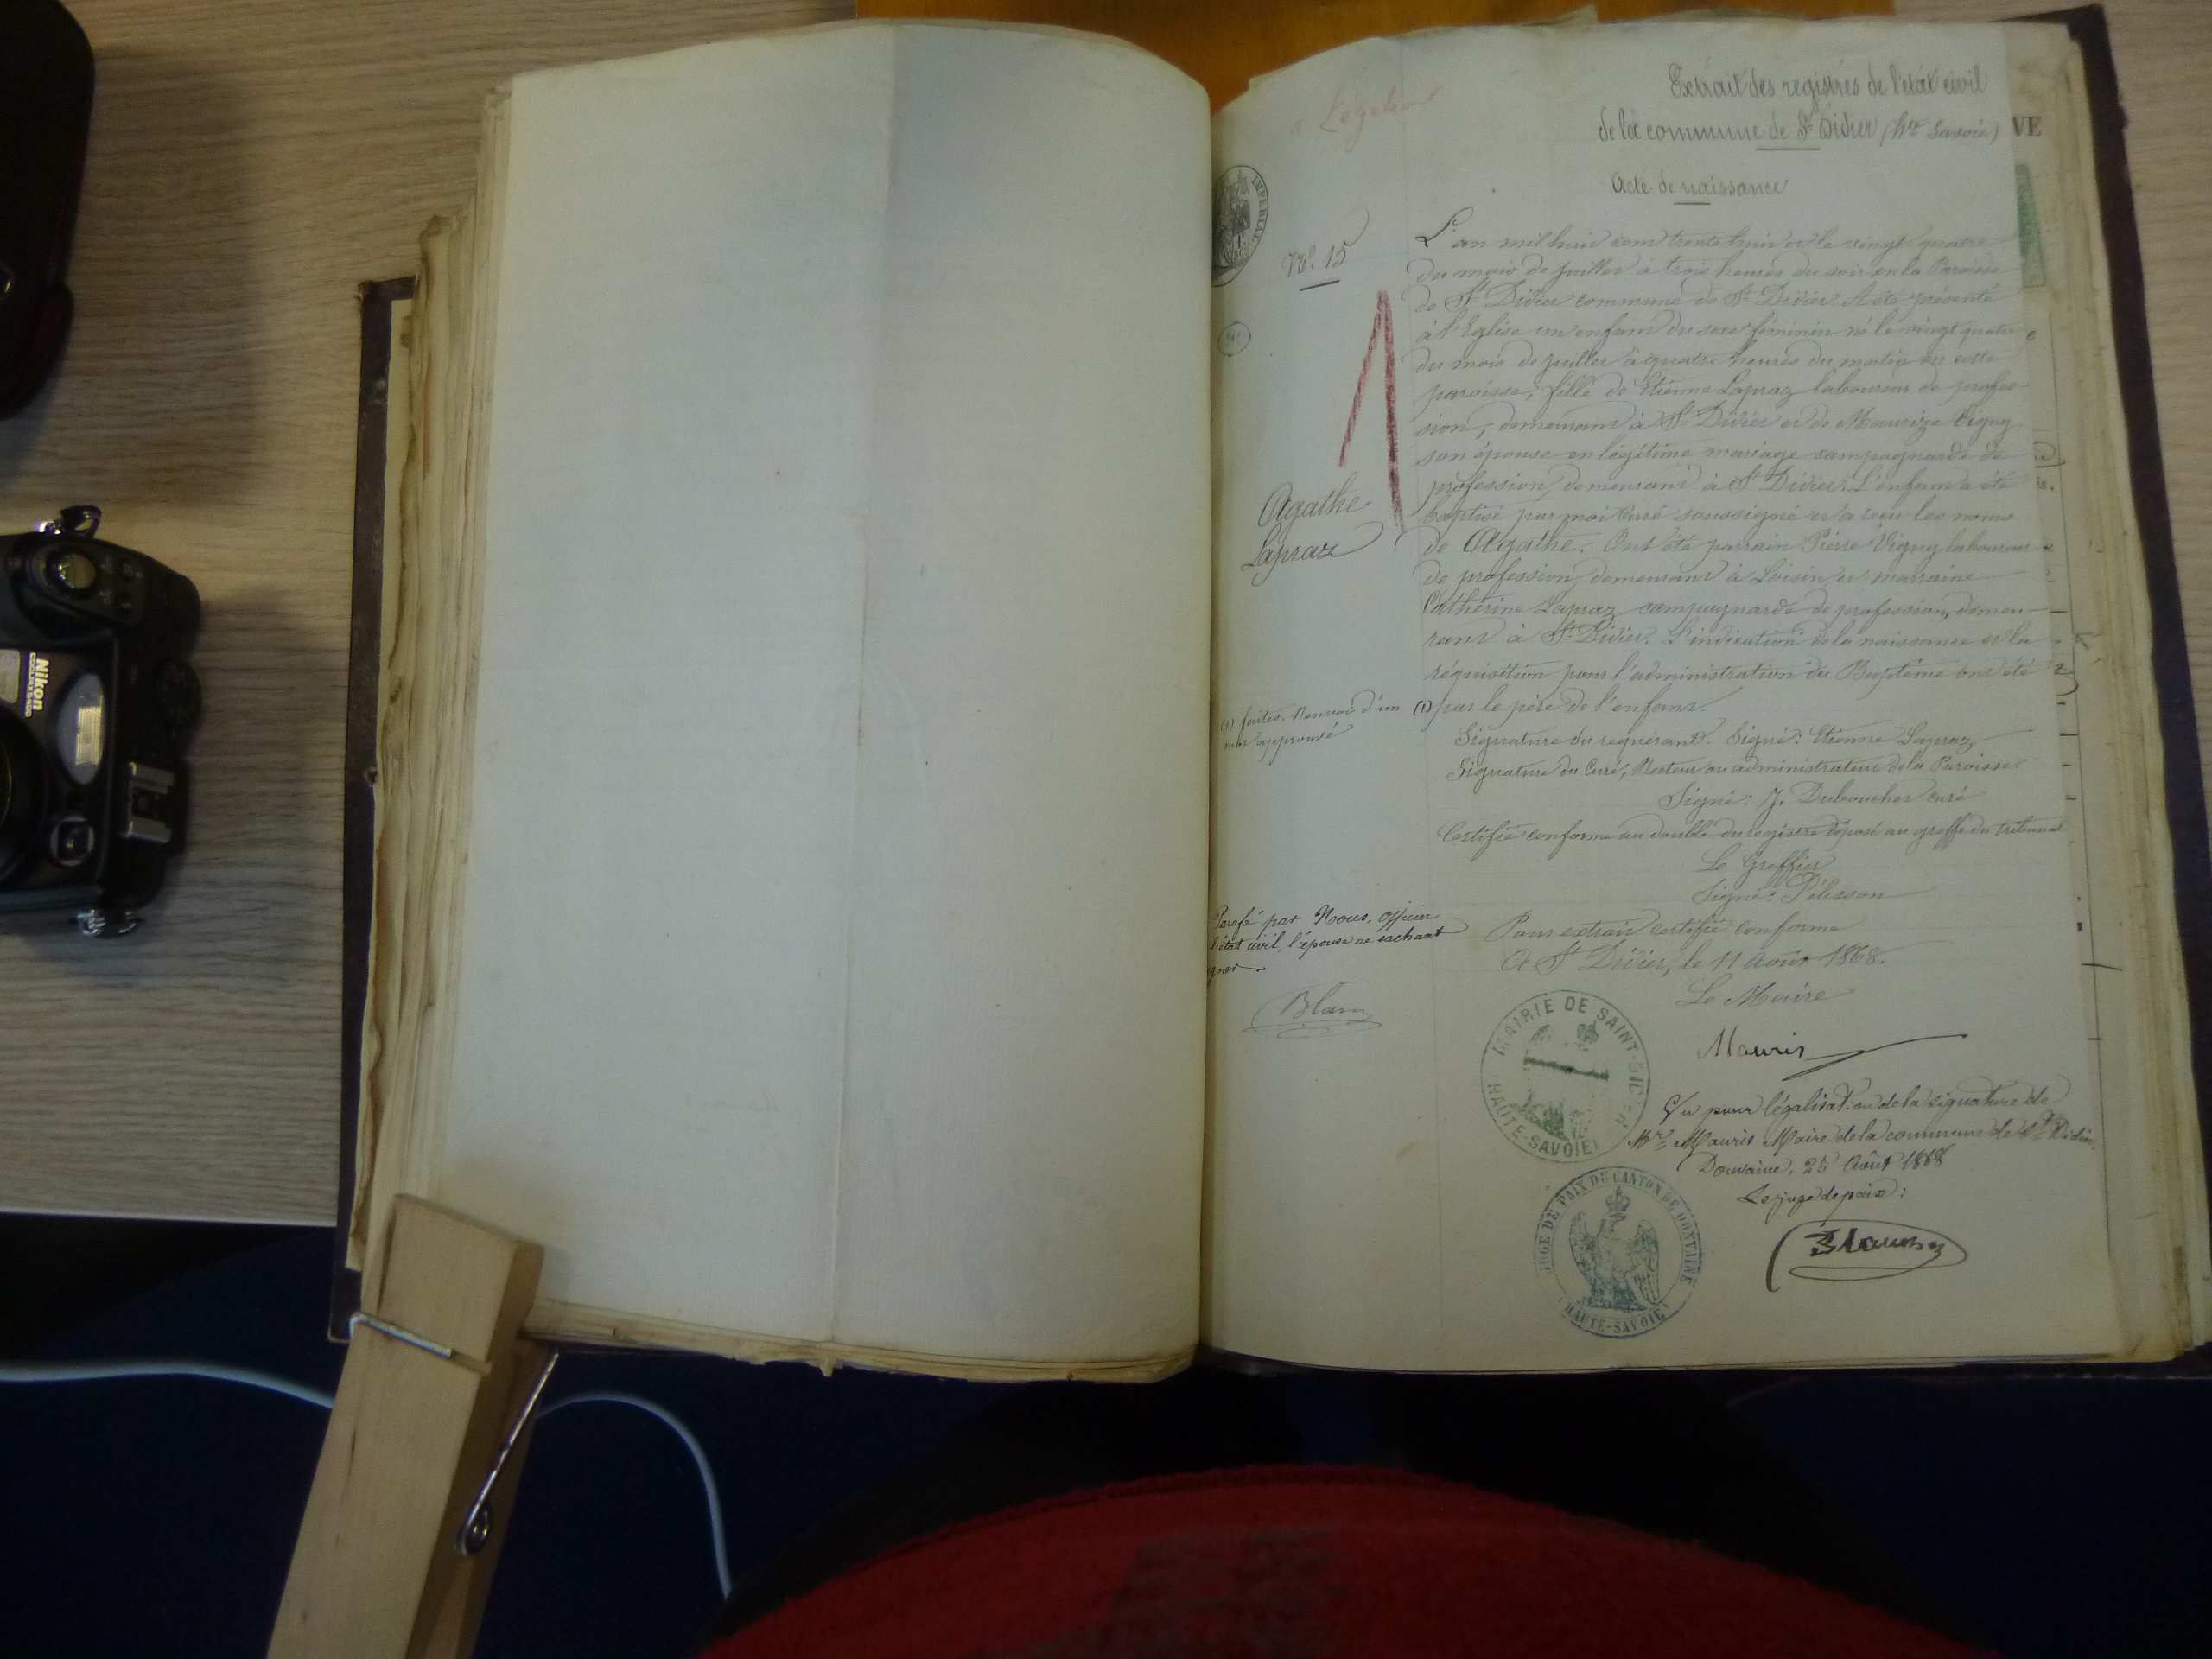 Extrait des registres de l'état civil
de la commune de St Didier (hte Savoie)
VE
Acte de naissance
IMPERIAL
No. 15
L'an mil huit cent trente huit et le vingt quatre
du mois de juillet à trois heures du soir en la Paroisse
de St Didier commune de St Didier. A été présenté
à l'Eglise un enfant du sexe féminin né le vingt quatre
du mois de juillet à quatre heures du matin en cette
paroisse, fille de Etienne Lapraz laboureur de profes-
sion, demeurant à St Didier et de Maurize Vigny
son épouse en légitime mariage campagnarde de
profession, demeurant à St Didier. L'enfant a été
baptisé par moi Curé soussigné et a reçu les noms
de Agathe. Ont été parrain Pierre Vigny laboureur
de profession, demeurant à Loisin, et marraine
Catherine Lapraz campagnarde de profession, demeu-
rant à St Didier. L'indication de la naissance et la
réquisition pour l'administration du Baptême ont été
(1) par le père de l'enfant.
Agathe
Lapraz
(1) faites. Renvoi d'un
mot approuvé
Signature du requérant. Signé: Etienne Lapraz
Signature du Curé, Recteur ou administrateur de la Paroisse.
Signé: J. Dubouchet curé
Certifié conforme au double du registre déposé au greffe du tribunal
Le Greffier
Signé: Pélisson
Parafé par Nous, officier
l'état civil, l'épouse ne sachant
igner
Pour extrait certifié conforme
A St Didier, le 11 Août 1868.
Le Maire
Mauris
MAIRIE DE SAINT-DIDIER
HAUTE-SAVOIE
Vu pour légalisation de la signature de
Mr. Mauris Maire de la commune de St Didier.
Douvaine, 25 Août 1868
Le juge de paix:
JUGE DE PAIX DU CANTON DE DOUVAINE
HAUTE-SAVOIE
Nikon
COOLPIX